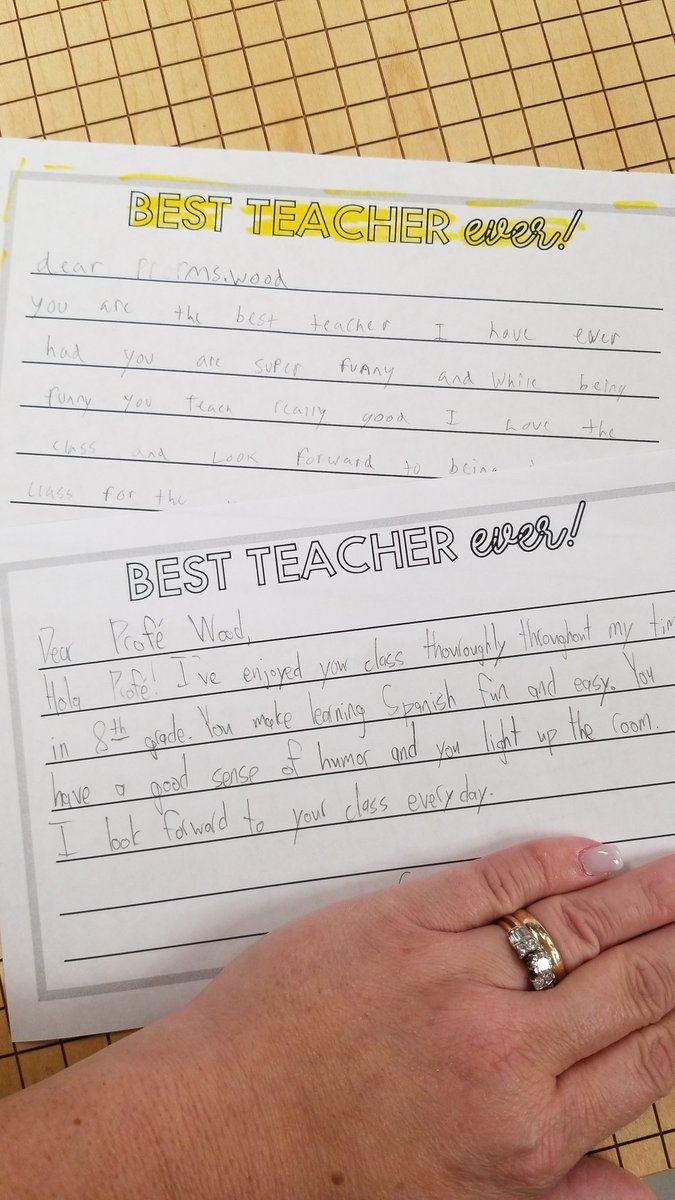 BEST TEACHER ever!
dear ms.wood
you are the best teacher I have ever
had you are super funny and while being
funny you teach really good I Love the
class and Look forward to being
class for the
BEST TEACHER ever!
Dear Profé Wood,
Hola Profé! I've enjoyed your class thouroughly throughout my
in 8th grade. You make learning Spanish fun and easy. You
have a good sense of humor and you light up the room.
I look forward to your class everyday.